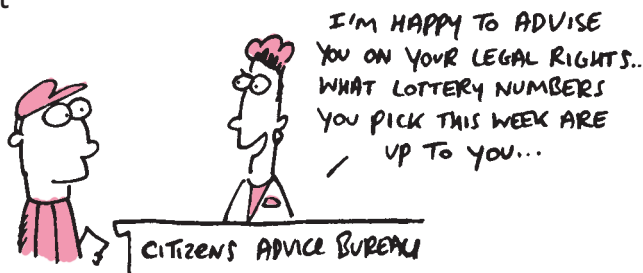 I'M HAPPY TO ADVISE
YOU ON YOUR LEGAL RIGHTS..
WHAT LOTTERY NUMBERS
YOU PICK THIS WEEK ARE
UP TO YOU...
CITIZENS ADVICE BUREAU